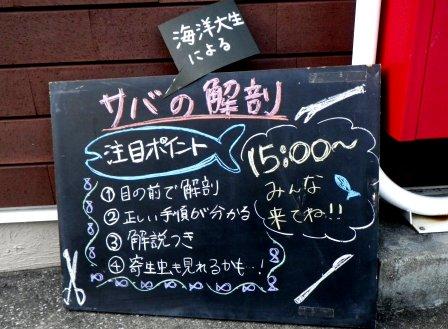 海洋大生
による
サバの解剖
注目ポイント
① 目の前で解剖
② 正しい手順が分かる
③ 解説つき
④ 寄生虫も見れるかも…!
15:00〜
みんな
来てね!!